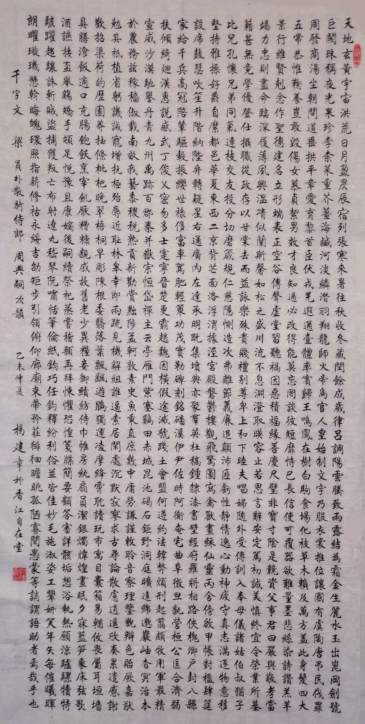 天地玄黃宇宙洪荒日月盈昃辰宿列張寒來暑往秋收冬藏閏餘成歲律呂調陽雲騰致雨露結為霜金生麗水玉出崑岡劍號
巨闕珠稱夜光果珍李柰菜重芥薑海鹹河淡鱗潛羽翔龍師火帝鳥官人皇始制文字乃服衣裳推位讓國有虞陶唐弔民伐罪
周發商湯坐朝問道垂拱平章愛育黎首臣伏戎羌遐邇壹體率賓歸王鳴鳳在樹白駒食場化被草木賴及萬方蓋此身髮四大
五常恭惟鞠養豈敢毀傷女慕貞絜男效才良知過必改得能莫忘罔談彼短靡恃己長信使可覆器欲難量墨悲絲染詩讚羔羊
景行維賢克念作聖德建名立形端表正空谷傳聲虛堂習聽禍因惡積福緣善慶尺璧非寶寸陰是競資父事君曰嚴與敬孝當
竭力忠則盡命臨深履薄夙興溫凊似蘭斯馨如松之盛川流不息淵澄取映容止若思言辭安定篤初誠美慎終宜令榮業所基
籍甚無竟學優登仕攝職從政存以甘棠去而益詠樂殊貴賤禮別尊卑上和下睦夫唱婦隨外受傅訓入奉母儀諸姑伯叔猶子
比兒孔懷兄弟同氣連枝交友投分切磨箴規仁慈隱惻造次弗離節義廉退顛沛匪虧性靜情逸心動神疲守真志滿逐物意移
堅持雅操好爵自縻都邑華夏東西二京背邙面洛浮渭據涇宮殿盤鬱樓觀飛驚圖寫禽獸畫綵仙靈丙舍傍啟甲帳對楹肆筵
設席鼓瑟吹笙升階納陛弁轉疑星右通廣內左達承明既集墳典亦聚群英杜稿鍾隸漆書壁經府羅將相路俠槐卿戶封八縣
家給千兵高冠陪輦驅轂振纓世祿侈富車駕肥輕策功茂實勒碑刻銘磻溪伊尹佐時阿衡奄宅曲阜微旦孰營桓公匡合濟弱
扶傾綺迴漢惠說感武丁俊乂密勿多士寔寧晉楚更霸趙魏困橫假途滅虢踐土會盟何遵約法韓弊煩刑起翦頗牧用軍最精
宣威沙漠馳譽丹青九州禹跡百郡秦并嶽宗恆岱禪主云亭雁門紫塞雞田赤城昆池碣石鉅野洞庭曠遠綿邈巖岫杳冥治本
於農務茲稼穡俶載南畝我藝黍稷稅熟貢新勸賞黜陟孟軻敦素史魚秉直庶幾中庸勞謙謹敕聆音察理鑒貌辨色貽厥嘉猷
勉其祗植省躬譏誡寵增抗極殆辱近恥林皋幸即兩疏見機解組誰逼索居閒處沉默寂寥求古尋論散慮逍遙欣奏累遣慼謝
歡招渠荷的歷園莽抽條枇杷晚翠梧桐早凋陳根委翳落葉飄颻遊鵾獨運凌摩絳霄耽讀玩市寓目囊箱易輶攸畏屬耳垣牆
具膳湌飯適口充腸飽飫烹宰飢厭糟糠親戚故舊老少異糧妾御績紡侍巾帷房紈扇圓潔銀燭煒煌晝眠夕寐藍筍象床弦歌
酒讌接杯舉觴矯手頓足悅豫且康嫡後嗣續祭祀蒸嘗稽顙再拜悚懼恐惶箋牒簡要顧答審詳骸垢想浴執熱願涼驢騾犢特
駭躍超驤誅斬賊盜捕獲叛亡布射遼丸嵇琴阮嘯恬筆倫紙鈞巧任釣釋紛利俗並皆佳妙毛施淑姿工顰妍笑年矢每催曦暉
朗曜璇璣懸斡晦魄環照指薪修祜永綏吉劭矩步引領俯仰廊廟束帶矜莊徘徊瞻眺孤陋寡聞愚蒙等誚謂語助者焉哉乎也
千字文 梁員外散騎侍郎 周興嗣次韻 己未仲夏 楊建章於香江自在堂